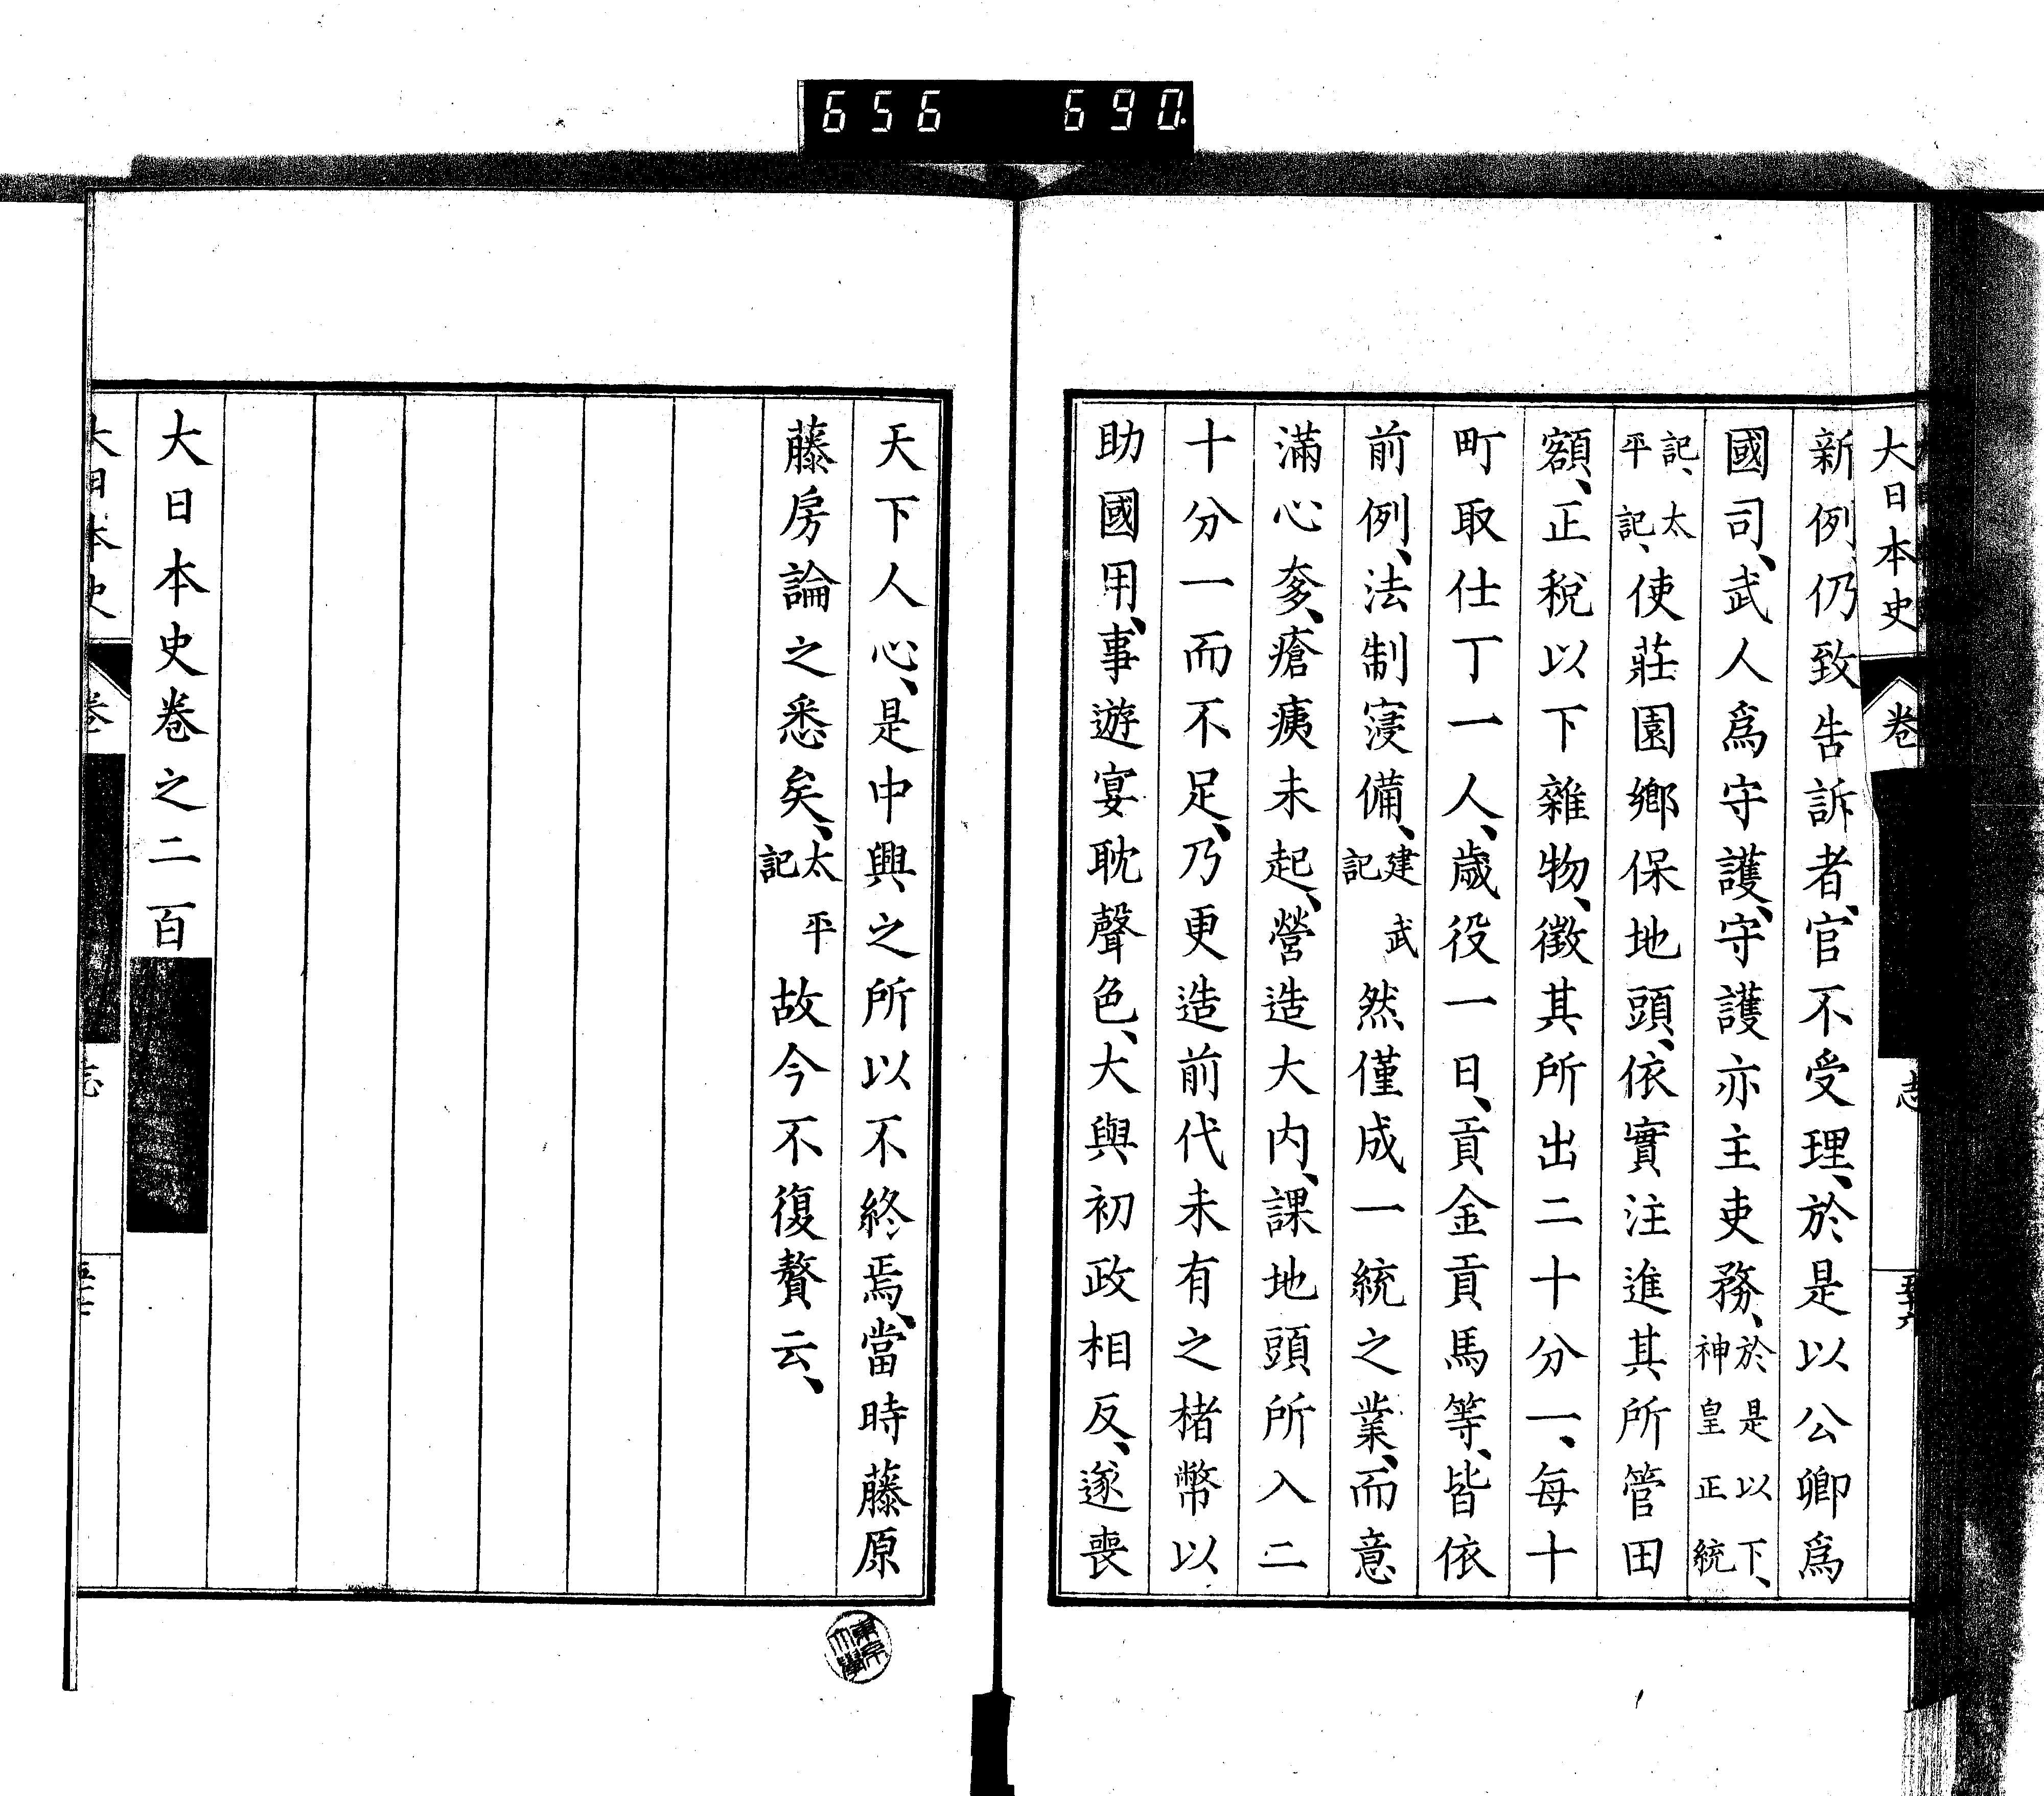 656 690
大日本史 卷 志
新例、仍致告訴者、官不受理、於是以公卿爲
國司、武人爲守護、守護亦主吏務、於是以下、神皇正統
記、太平記、使莊園鄉保地頭、依實注進其所管田
額、正税以下雜物、徴其所出二十分一、每十
町取仕丁一人、歲役一日、貢金貢馬等、皆依
前例、法制寖備、建武記然僅成一統之業、而意
滿心奓、瘡痍未起、營造大内、課地頭所入二
十分一而不足、乃更造前代未有之楮幣以
助國用、事遊宴耽聲色、大與初政相反、遂喪
天下人心、是中興之所以不終焉、當時藤原
藤房論之悉矣、太平記故今不復贅云、
大日本史卷之二百
大日本史 卷 志